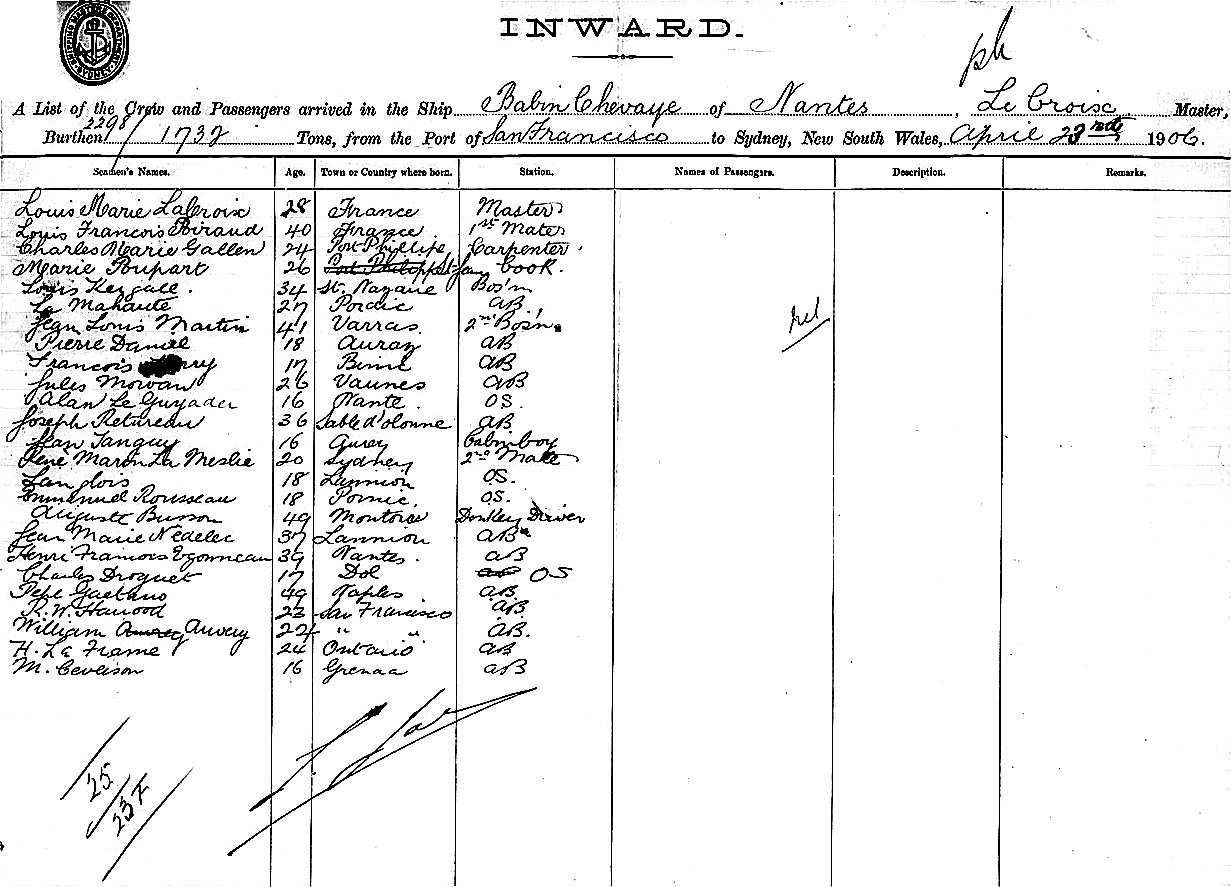 SHIPPING MASTERS DEPARTMENT SYDNEY
INWARD.
A List of the Crew and Passengers arrived in the Ship Babin Chevaye of Nantes, Le Croix Master,
2298/
Burthen 1732 Tons, from the Port of San Francisco to Sydney, New South Wales, April 23 1906.
Seamen's Names. Age. Town or Country where born. Station. Names of Passengers. Description. Remarks.
Louis Marie LaCroix 28 France Master
Louis Francois Poiraud 40 France 1st Mate
Charles Marie Gallen 24 Port Phillipe Carpenter
Marie Poupart 26 Port Philippe Cook.
Louis Kergall. 34 St. Nazaire Bos'n
La Mahaute 27 Pordic AB
Jean Louis Martin 41 Varras. 2nd Bos'n.
nil
Pierre Daniel 18 Auray AB
Francois 17 AB
Jules Morvan 26 Vaunes AB
Alan Le Guyader 16 Nante. OS.
Joseph Retureau 36 Sable d'olonne AB
Jean Tanguy 16 Aurey Cabinboy
René Maron La Meslie 20 Sydney 2nd Mate
Langlois 18 Lannion OS.
Emmanuel Rousseau 18 Pornic OS.
Auguste Busson 49 Montoire Donkey Driver
Jean Marie Nedelec 37 Lannion AB
Henri Francois Egonneau 39 Nantes. AB
Charles Droguet 17 Dol AB OS
Pepe Gaetano 49 Naples AB
R. W. Harwood 23 San Francisco AB
William Auvery 22 " " AB.
H. La Frame 24 Ontario AB
M. Cevelson 16 Grenaa AB
25
23 F